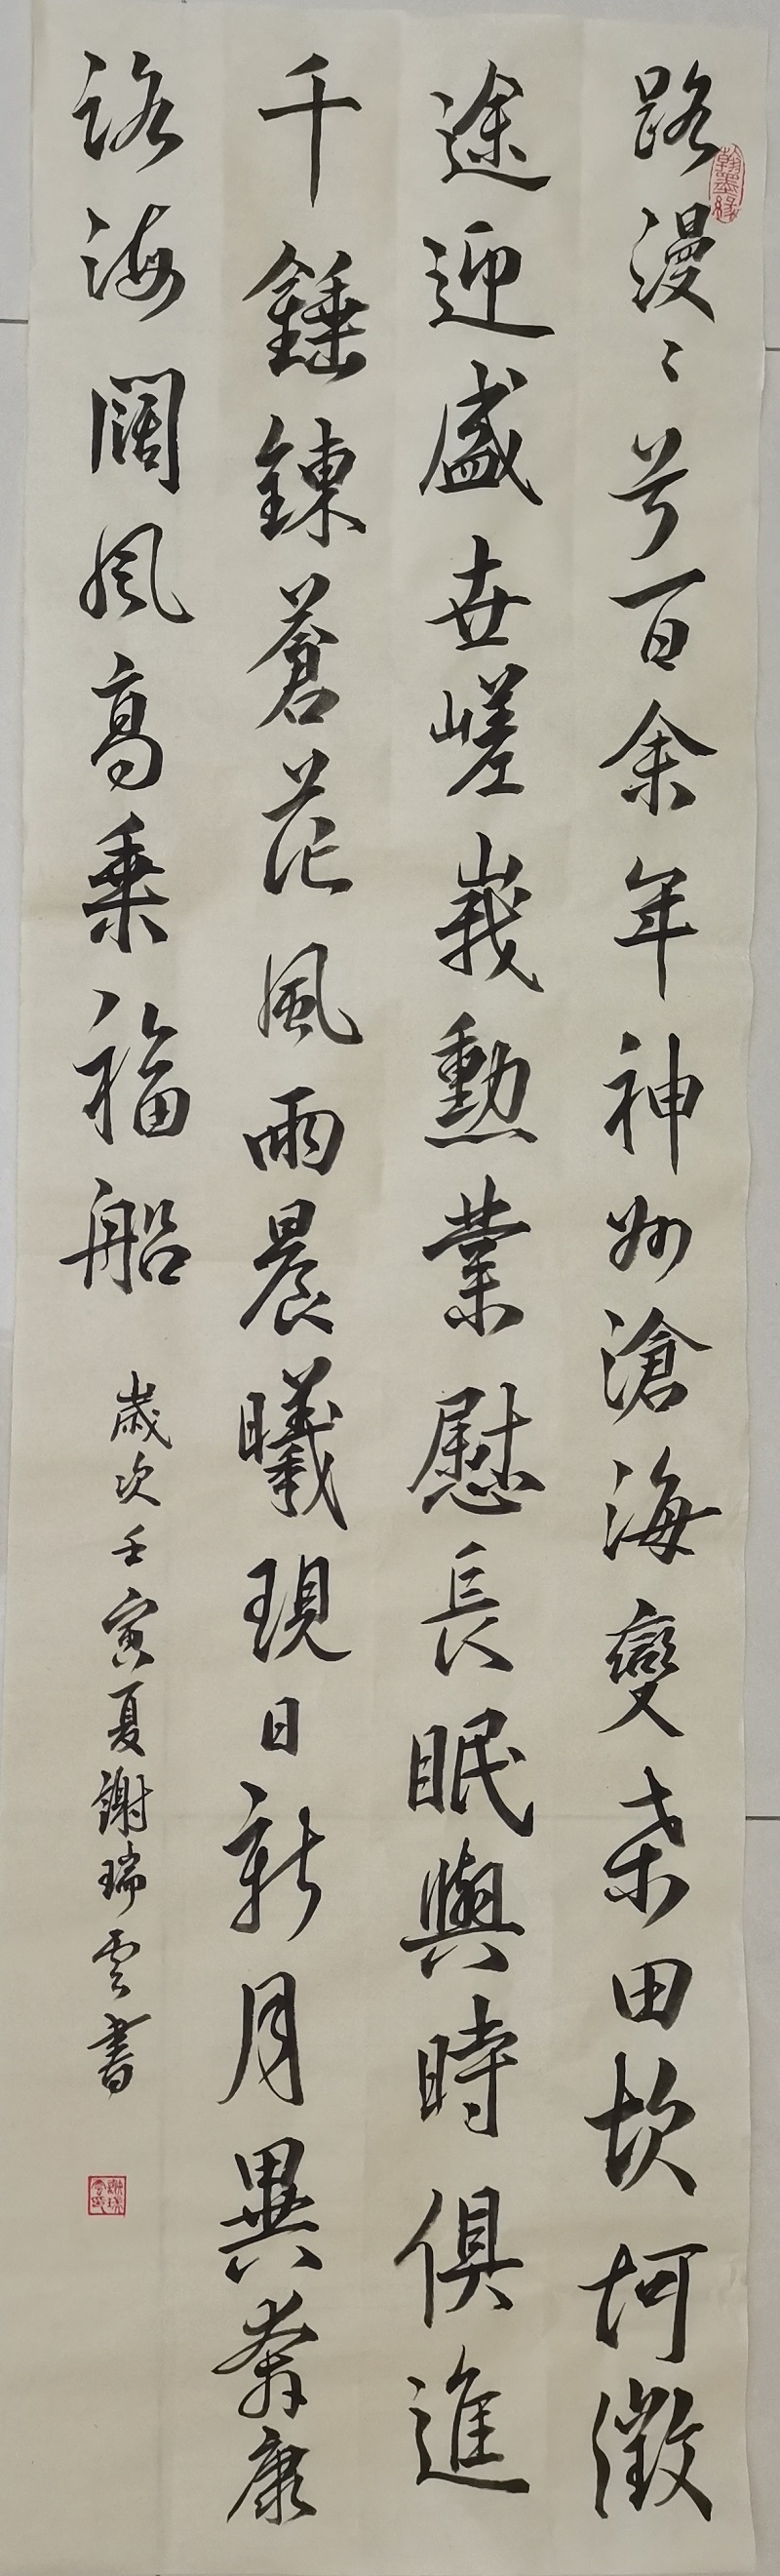 路漫〻兮百余年神州滄海變桒田坎坷徵
途迎盛世嵯峩勳業慰長眠與時俱進
千錘鍊蒼茫風雨晨曦現日新月異奔康
路海闊風高乘福船
歲次壬寅夏謝瑞雲書
翰墨緣